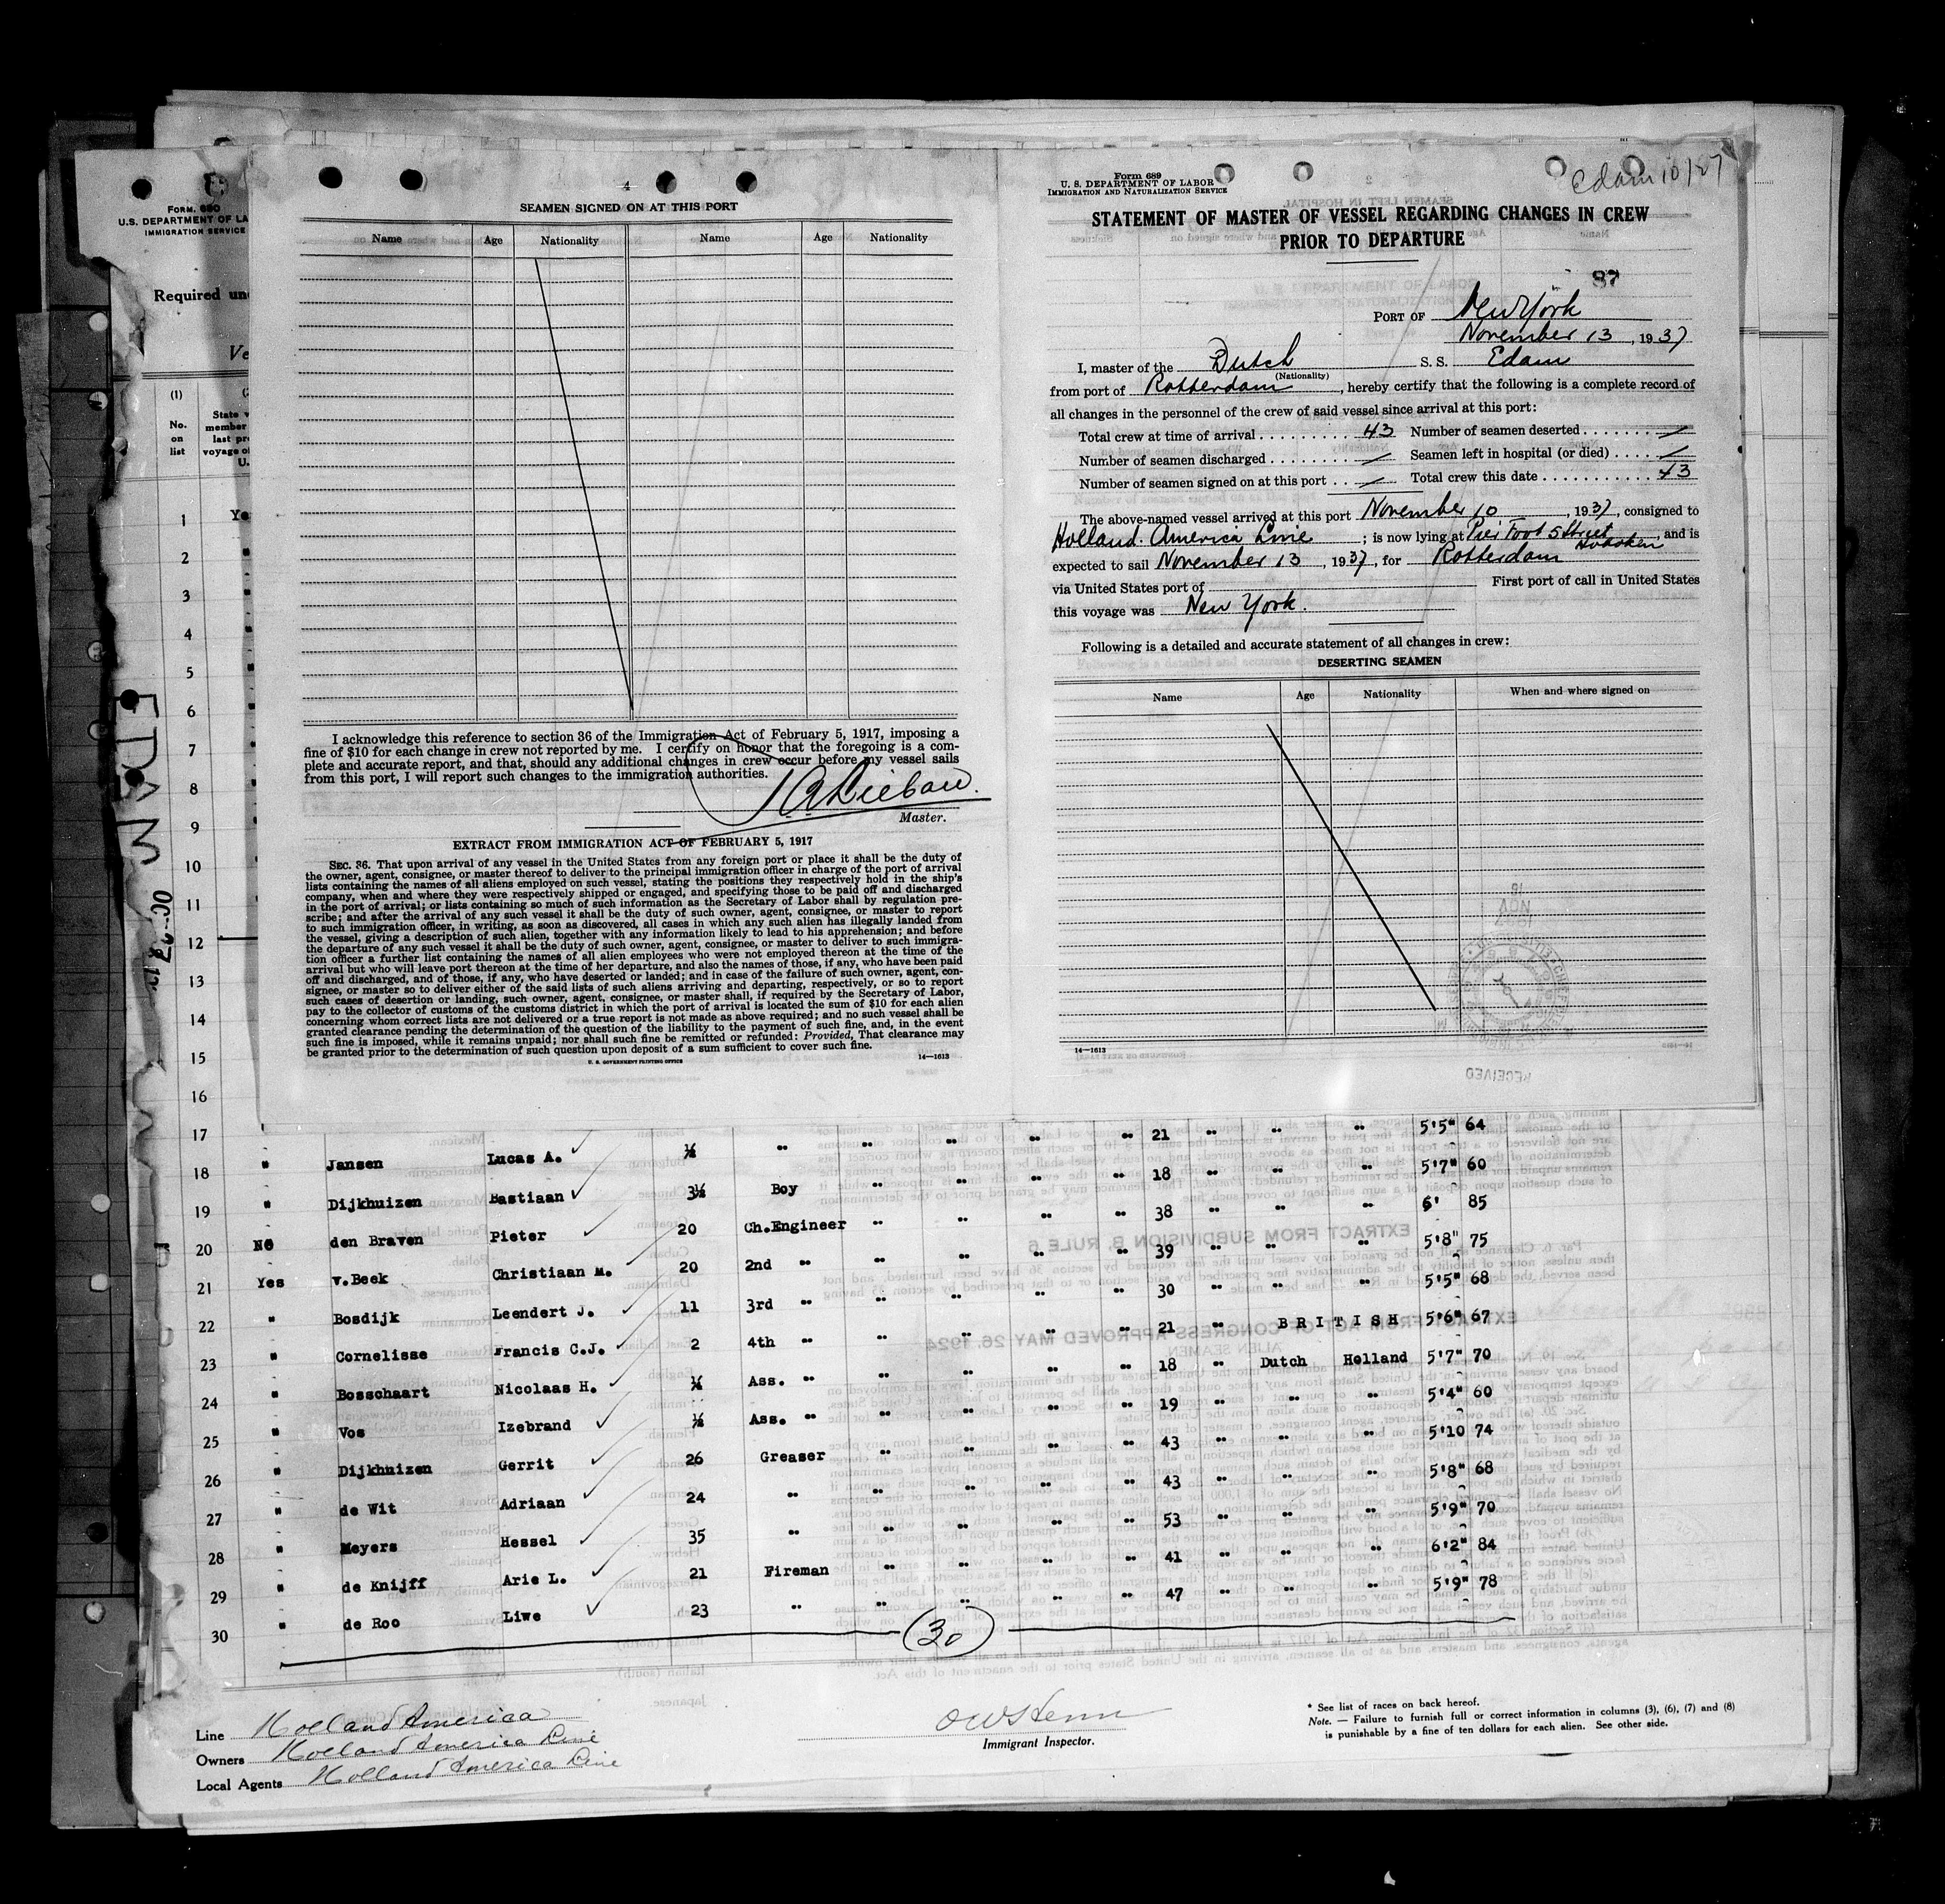 4
SEAMEN SIGNED ON AT THIS PORT
Name Age Nationality Name Age Nationality
I acknowledge this reference to section 36 of the Immigration Act of February 5, 1917, imposing a
fine of $10 for each change in crew not reported by me. I certify on honor that the foregoing is a com-
plete and accurate report, and that, should any additional changes in crew occur before my vessel sails
from this port, I will report such changes to the immigration authorities.
Master.
EXTRACT FROM IMMIGRATION ACT OF FEBRUARY 5, 1917
SEC. 36. That upon arrival of any vessel in the United States from any foreign port or place it shall be the duty of
the owner, agent, consignee, or master thereof to deliver to the principal immigration officer in charge of the port of arrival
lists containing the names of all aliens employed on such vessel, stating the positions they respectively hold in the ship's
company, when and where they were respectively shipped or engaged, and specifying those to be paid off and discharged
in the port of arrival; or lists containing so much of such information as the Secretary of Labor shall by regulation pre-
scribe; and after the arrival of any such vessel it shall be the duty of such owner, agent, consignee, or master to report
to such immigration officer, in writing, as soon as discovered, all cases in which any such alien has illegally landed from
the vessel, giving a description of such alien, together with any information likely to lead to his apprehension; and before
the departure of any such vessel it shall be the duty of such owner, agent, consignee, or master to deliver to such immigra-
tion officer a further list containing the names of all alien employees who were not employed thereon at the time of the
arrival but who will leave port thereon at the time of her departure, and also the names of those, if any, who have been paid
off and discharged, and of those, if any, who have deserted or landed; and in case of the failure of such owner, agent, con-
signee, or master so to deliver either of the said lists of such aliens arriving and departing, respectively, or so to report
such cases of desertion or landing, such owner, agent, consignee, or master shall, if required by the Secretary of Labor,
pay to the collector of customs of the customs district in which the port of arrival is located the sum of $10 for each alien
concerning whom correct lists are not delivered or a true report is not made as above required; and no such vessel shall be
granted clearance pending the determination of the question of the liability to the payment of such fine, and, in the event
such fine is imposed, while it remains unpaid; nor shall such fine be remitted or refunded: Provided, That clearance may
be granted prior to the determination of such question upon deposit of a sum sufficient to cover such fine.
U. S. GOVERNMENT PRINTING OFFICE 14—1613
Edam 10/27
Form 689
U. S. DEPARTMENT OF LABOR
IMMIGRATION AND NATURALIZATION SERVICE
STATEMENT OF MASTER OF VESSEL REGARDING CHANGES IN CREW
PRIOR TO DEPARTURE
87
PORT OF New York
November 13, 1937
I, master of the Dutch S. S. Edam
(Nationality)
from port of Rotterdam, hereby certify that the following is a complete record of
all changes in the personnel of the crew of said vessel since arrival at this port:
Total crew at time of arrival 43 Number of seamen deserted /
Number of seamen discharged / Seamen left in hospital (or died) /
Number of seamen signed on at this port / Total crew this date 43
The above-named vessel arrived at this port November 10, 1937, consigned to
Holland America Line; is now lying at Pier Foot 5 Street Hoboken, and is
expected to sail November 13, 1937, for Rotterdam
via United States port of First port of call in United States
this voyage was New York.
Following is a detailed and accurate statement of all changes in crew:
DESERTING SEAMEN
Name Age Nationality When and where signed on
14—1613
RECEIVED
FORM. 680
U.S. DEPARTMENT OF LA
IMMIGRATION SERVICE
Required un
Ve
(1)
No.
on
list
State
member
last pr
voyage o
U.
EDAM
1 Ye
2 "
3 "
4 "
5 "
6 "
7 "
8
9
10
11
12
13
14
15
16
17 " Jansen Lucas A. ½ " " " " " 21 " " " 5'5" 64
18 " Dijkhuizen Bastiaan 3½ Boy " " " " 18 " " " 5'7" 60
19 " den Braven Pieter 20 Ch.Engineer " " " " 38 " " " 6' 85
20 No v.Beek Christiaan M. 20 2nd " " " " " 39 " " " 5'8" 75
21 Yes Bosdijk Leendert J. 11 3rd " " " " " 30 " " " 5'5" 68
22 " Cornelisse Francis C.J. 2 4th " " " " " 21 " BRITISH 5'6" 67
23 " Bosschaart Nicolaas H. ½ Ass. " " " " " 18 " Dutch Holland 5'7" 70
24 " Vos Izebrand ½ Ass. " " " " " 19 " " " 5'4" 60
25 " Dijkhnizen Gerrit 26 Greaser " " " " 43 " " " 5'10 74
26 " de Wit Adriaan 24 " " " " " 43 " " " 5'8" 68
27 " Meyers Hessel 35 " " " " " 53 " " " 5'9" 70
28 " de Knijff Arie L. 21 Fireman " " " " 41 " " " 6'2" 84
29 " de Roo Liwe 23 " " " " " 47 " " " 5'9" 78
30
(30)
Line Holland America
Owners Holland America Line
Local Agents Holland America Line
Immigrant Inspector.
* See list of races on back hereof.
Note. — Failure to furnish full or correct information in columns (3), (6), (7) and (8)
is punishable by a fine of ten dollars for each alien. See other side.